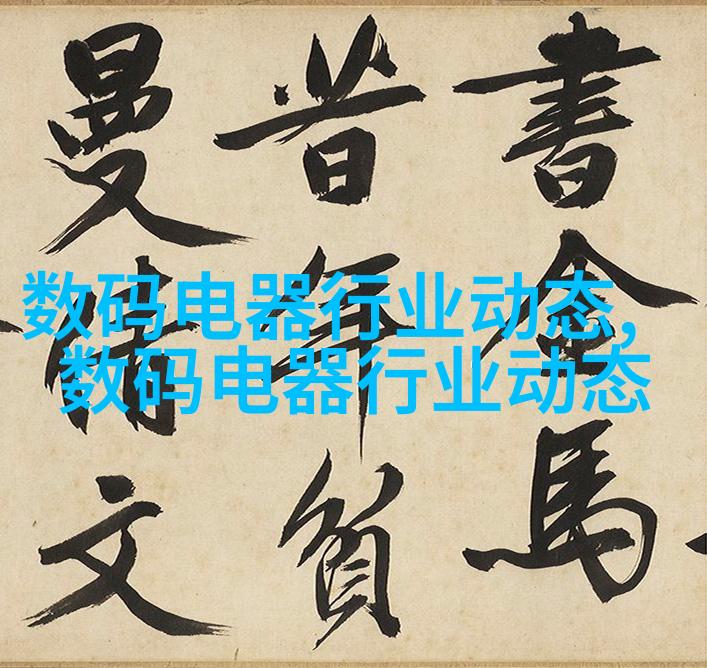 数码电器行业动态,
数码电器行业动态
書金馬
昔年負
曼倩文